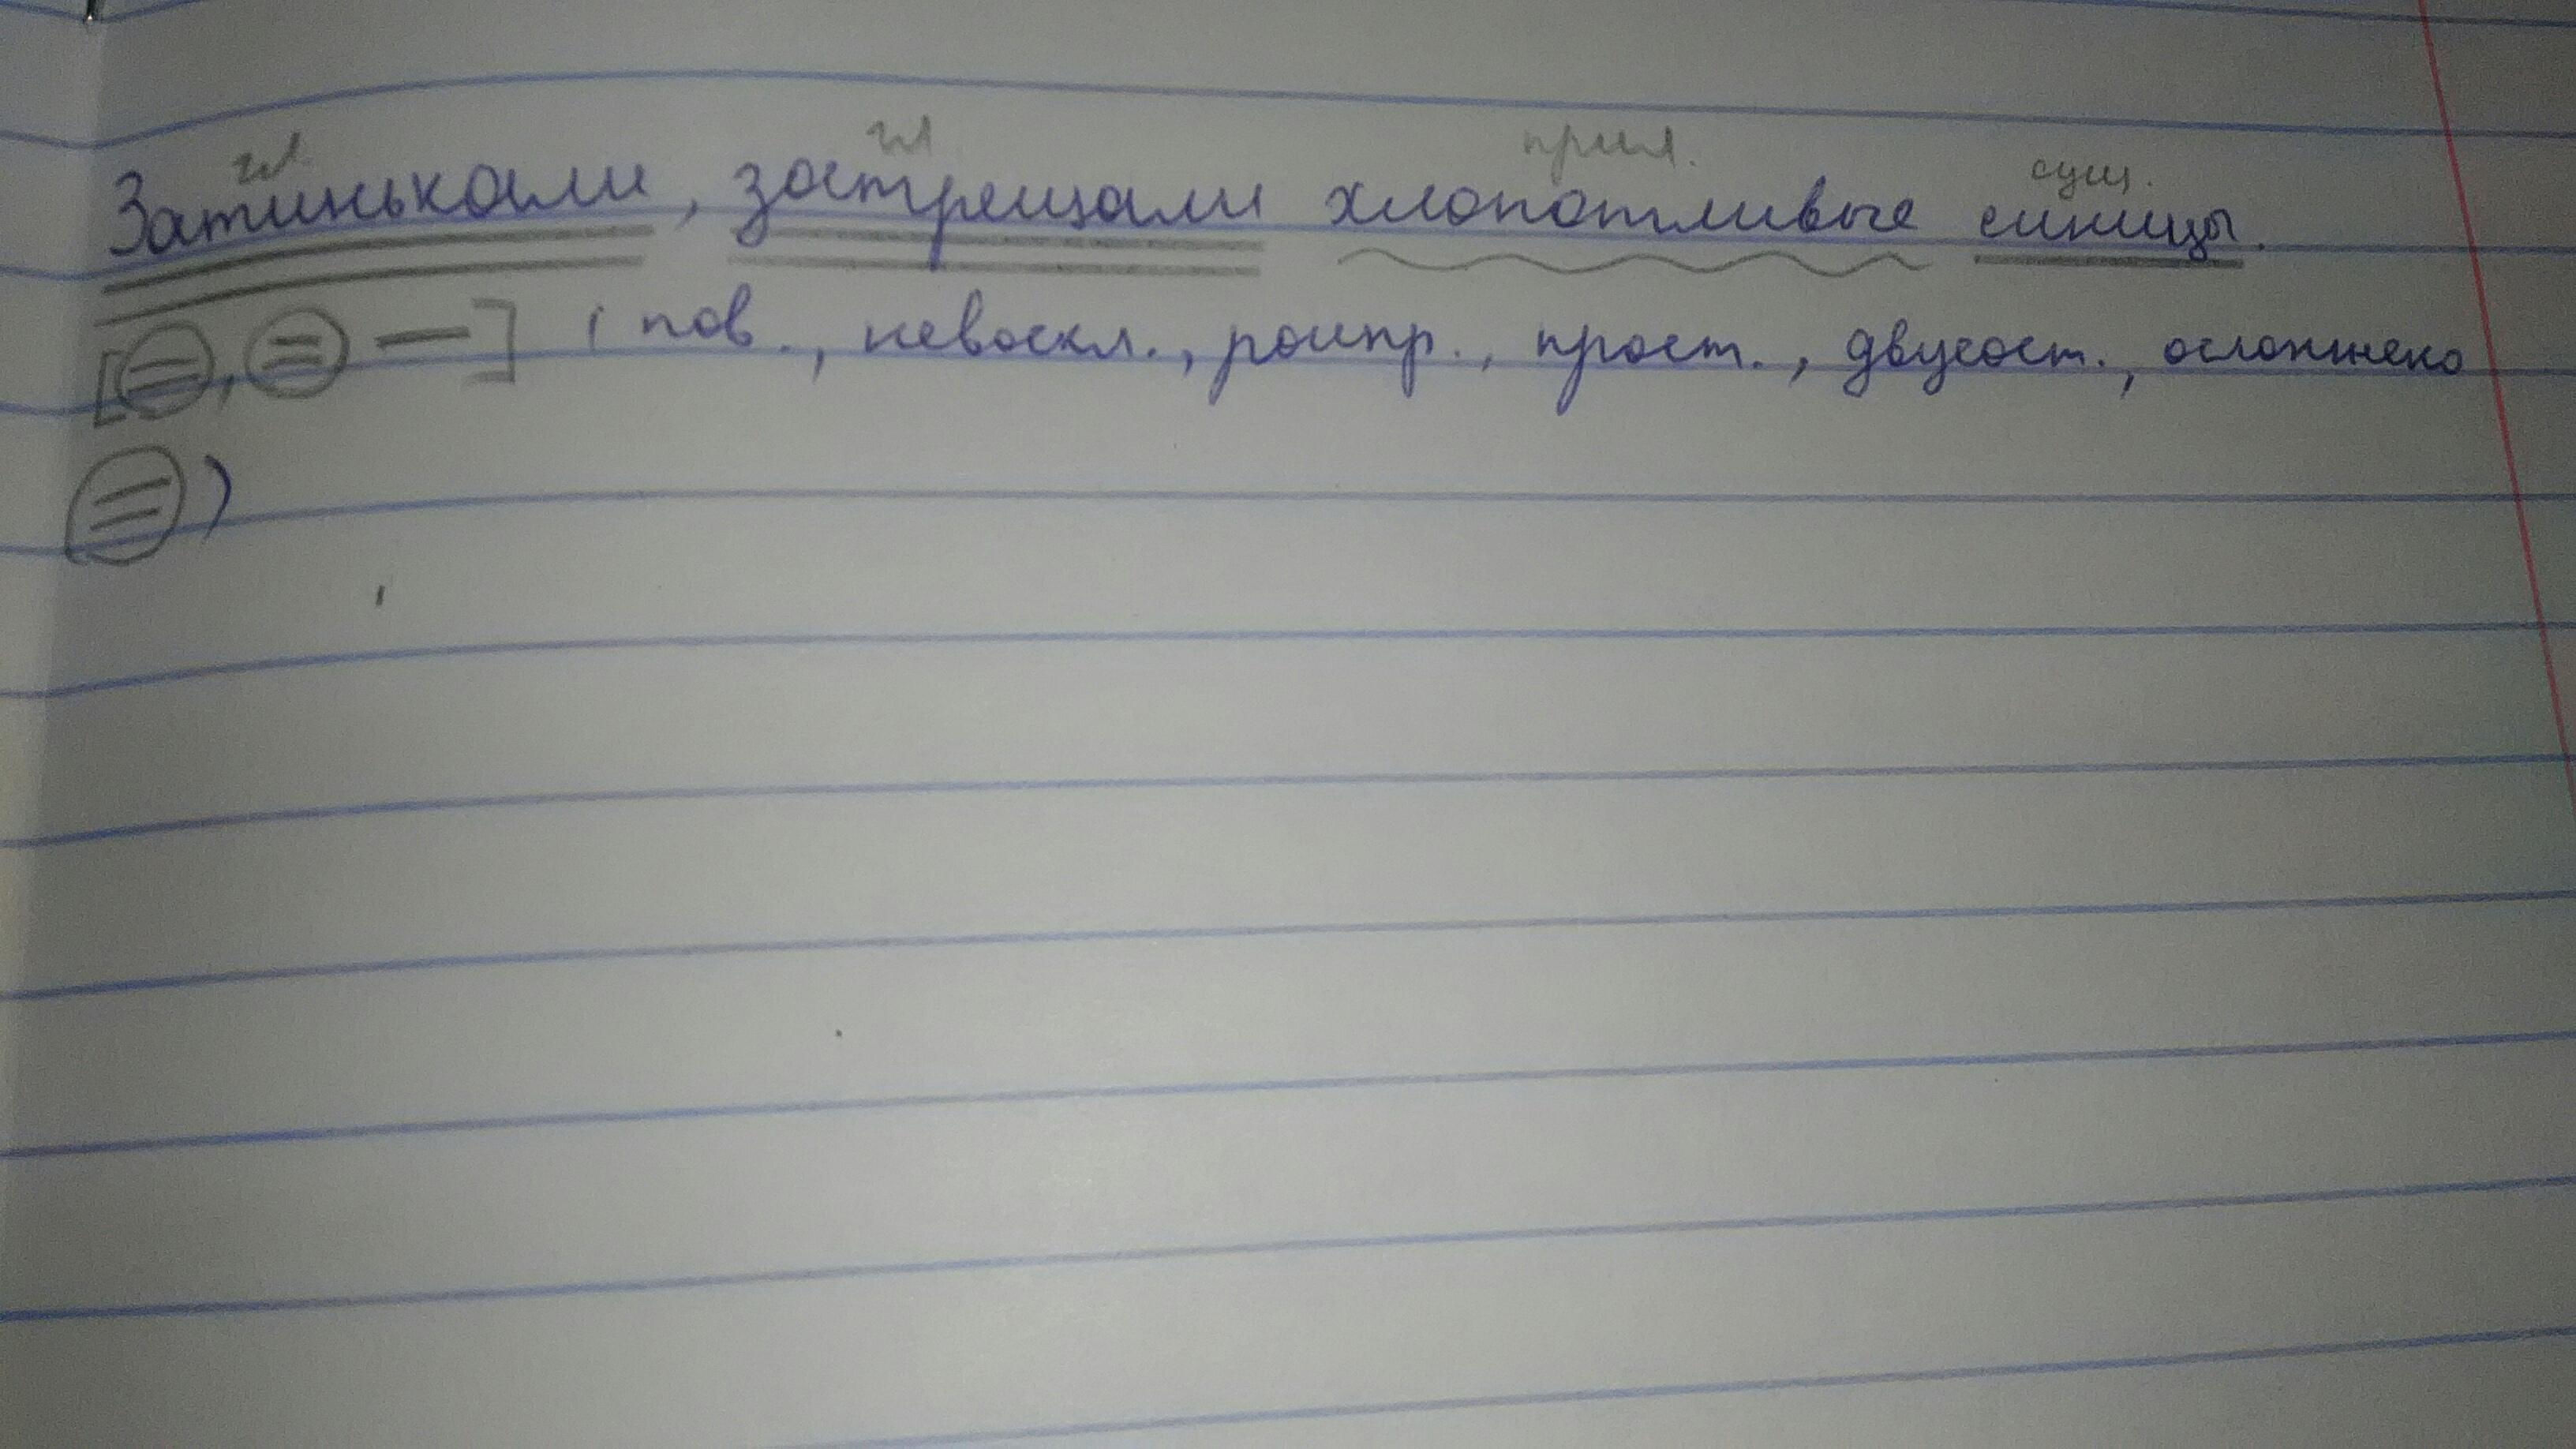 гл. гл прил. сущ.
Затинькали, затрещали хлопотливые синицы.
[=, = —] (пов., невоскл., распр., прост., двусост., осложнено
=)